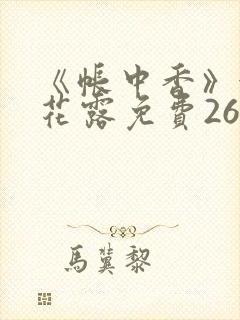 《帐中香》
花露免费26
馬冀黎